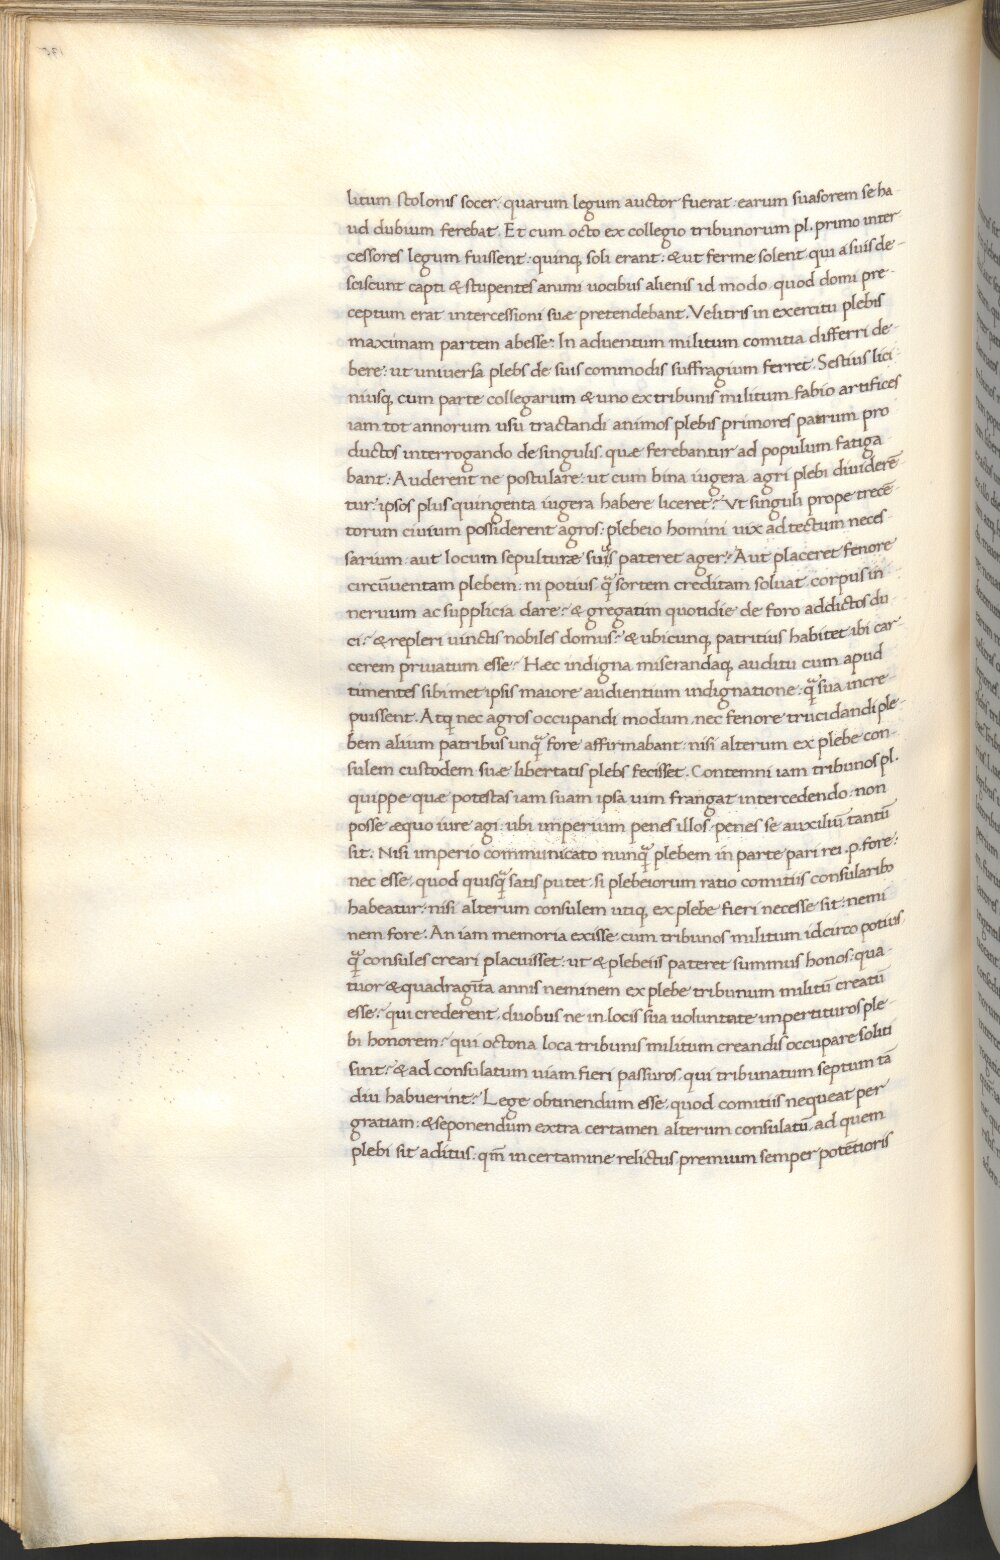 litum stolonis socer: quarum legum auctor fuerat: earum suasorem se ha-
ud dubium ferebat. Et cum octo ex collegio tribunorum pl. primo inter
cessores legum fuissent: quinq; soli erant: & ut ferme solent qui a suis de-
sciscunt capti & stupentes animi uocibus alienis id modo quod domi pre-
ceptum erat intercessioni suæ pretendebant. Velitris in exercitu plebis
maximam partem abesse: In aduentum militum comitia differri de-
bere: ut uniuersa plebs de suis commodis suffragium ferret. Sestius lici-
niusq; cum parte collegarum & uno ex tribunis militum fabio artifices
iam tot annorum usu tractandi animos plebis primores patrum pro
ductos interrogando de singulis quæ ferebantur ad populum fatiga-
bant: Auderent ne postulare: ut cum bina iugera agri plebi diuiderē
tur: ipsos plus quingenta iugera habere liceret? Vt singuli prope trecē
torum ciuium possiderent agros: plebeio homini uix ad tectum neces-
sarium aut locum sepulturæ suus pateret ager? Aut placeret fenore
circūuentam plebem: ni potius q̄ sortem creditam soluat corpus in
neruum ac supplicia dare? & gregatim quotidie de foro addictos du
ci? & repleri uinctis nobiles domus? & ubicunq; patritius habitet ibi car-
cerem priuatum esse? Hæc indigna miserandaq; auditu cum apud
timentes sibimet ipsis maiore audientium indignatione: q̄ sua incre-
puissent. Atq; nec agros occupandi modum nec fenore trucidandi ple-
bem alium patribus unq̄ fore affirmabant: nisi alterum ex plebe con-
sulem custodem suæ libertatis plebs fecisset. Contemni iam tribunos pl.
quippe quæ potestas iam suam ipsa uim frangat intercedendo: non
posse æquo iure agi: ubi imperium penes illos: penes se auxiliū tantū
sit: Nisi imperio communicato nunq̄ plebem in parte pari rei .p. fore:
nec esse quod quisq̄ satis putet: si plebeiorum ratio comitiis consularibꝰ
habeatur: nisi alterum consulem utiq; ex plebe fieri necesse sit: nemi
nem fore: An iam memoria exisse: cum tribunos militum idcirco potius
q̄ consules creari placuisset: ut & plebeiis pateret summus honos: qua-
tuor & quadragīta annis neminem ex plebe tribunum militū creatū
esse? qui crederent duobus ne in locis sua uoluntate impertituros ple-
bi honorem? qui octona loca tribunis militum creandis occupare soliti
sint? & ad consulatum uiam fieri passuros: qui tribunatum septum tā
diu habuerint? Lege obtinendum esse quod comitiis nequeat per
gratiam: & seponendum extra certamen alterum consulatū ad quem
plebi sit aditus: qm̄ in certamine relictus premium semper potētioris